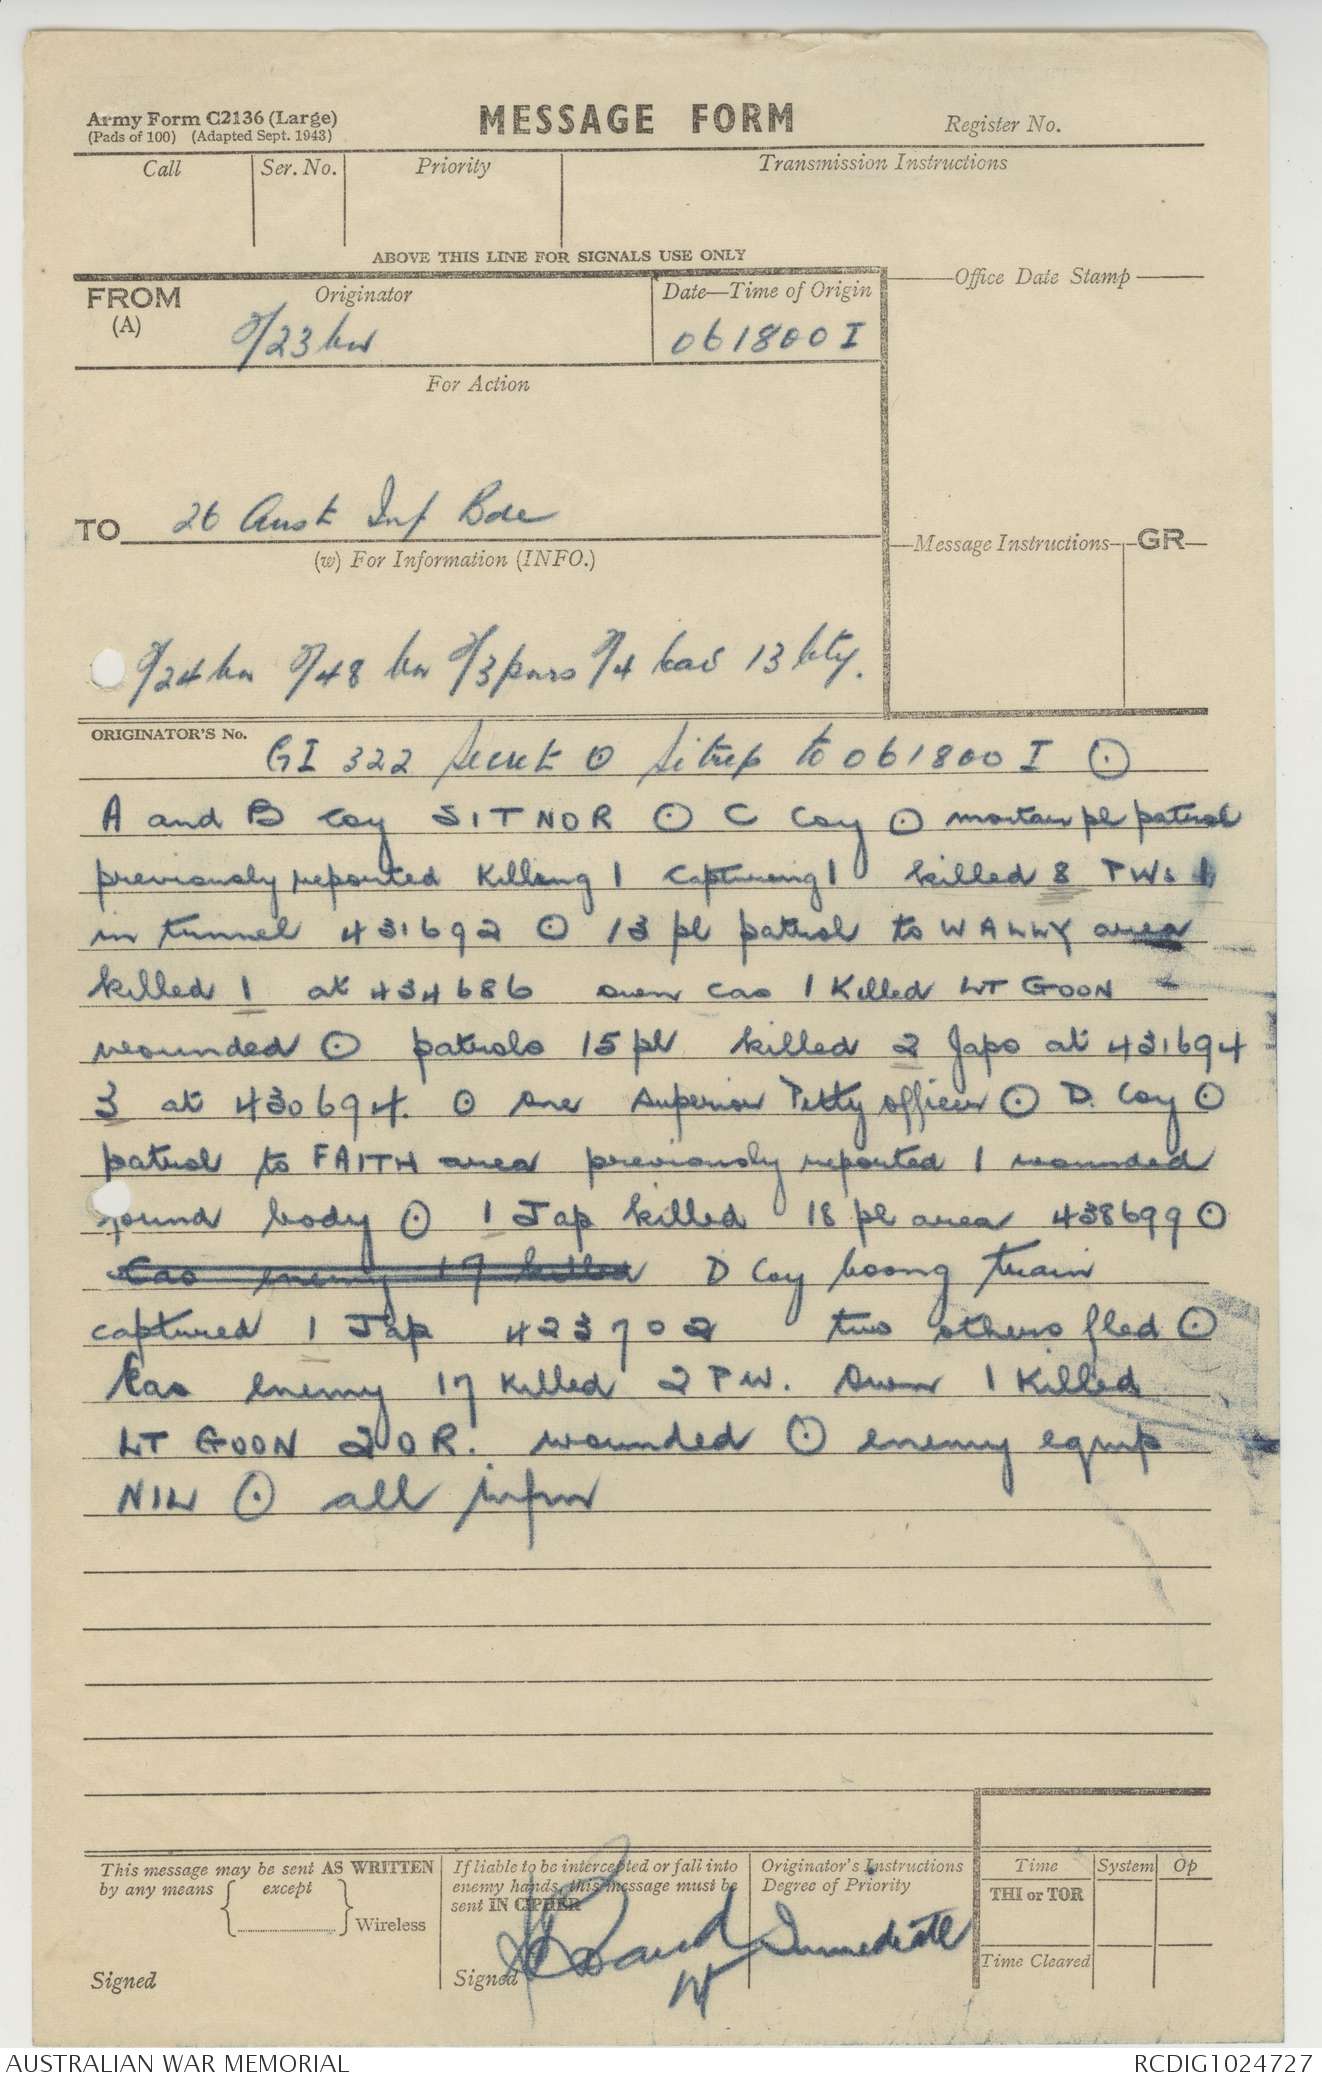 Army Form C2136 (Large)
(Pads of 100) (Adapted Sept. 1943)
MESSAGE FORM
Register No.
Call
Ser. No.
Priority
Transmission Instructions
ABOVE THIS LINE FOR SIGNALS USE ONLY
FROM
(A)
Originator
2/23 bn
Date—Time of Origin
061800 I
Office Date Stamp
For Action
TO 26 Aust Inf Bde
(w) For Information (INFO.)
Message Instructions
GR
2/24 bn 2/48 bn 2/3 pnrs 2/4 cas 13 bty.
ORIGINATOR'S No.
GI 322 Secret ⊙ Sitrep to 061800 I ⊙
A and B Coy SITNOR ⊙ C Coy ⊙ mortar pl patrol
previously reported Killing 1 Capturing 1 killed 8 PWs 1
in tunnel 431692 ⊙ 13 pl patrol to WALLY area
killed 1 at 434686 own cas 1 Killed LT GOON
wounded ⊙ patrols 15 pl killed 2 Japs at 431694
3 at 430694. ⊙ one superior Petty officer ⊙ D. Coy ⊙
patrol to FAITH area previously reported 1 wounded
found body ⊙ 1 Jap killed 18 pl area 438699 ⊙
Cas enemy 17 killed D Coy boong train
captured 1 Jap 423702 two others fled ⊙
Cas enemy 17 Killed 2 PW. own 1 Killed
LT GOON 2 OR. wounded ⊙ enemy equip
NIL ⊙ all infm
This message may be sent AS WRITTEN
by any means { except } Wireless
Signed
If liable to be intercepted or fall into
enemy hands, this message must be
sent IN CIPHER
Signed
Lt
Originator's Instructions
Degree of Priority
Immediate
Time
System
Op
THI or TOR
Time Cleared
AUSTRALIAN WAR MEMORIAL
RCDIG1024727